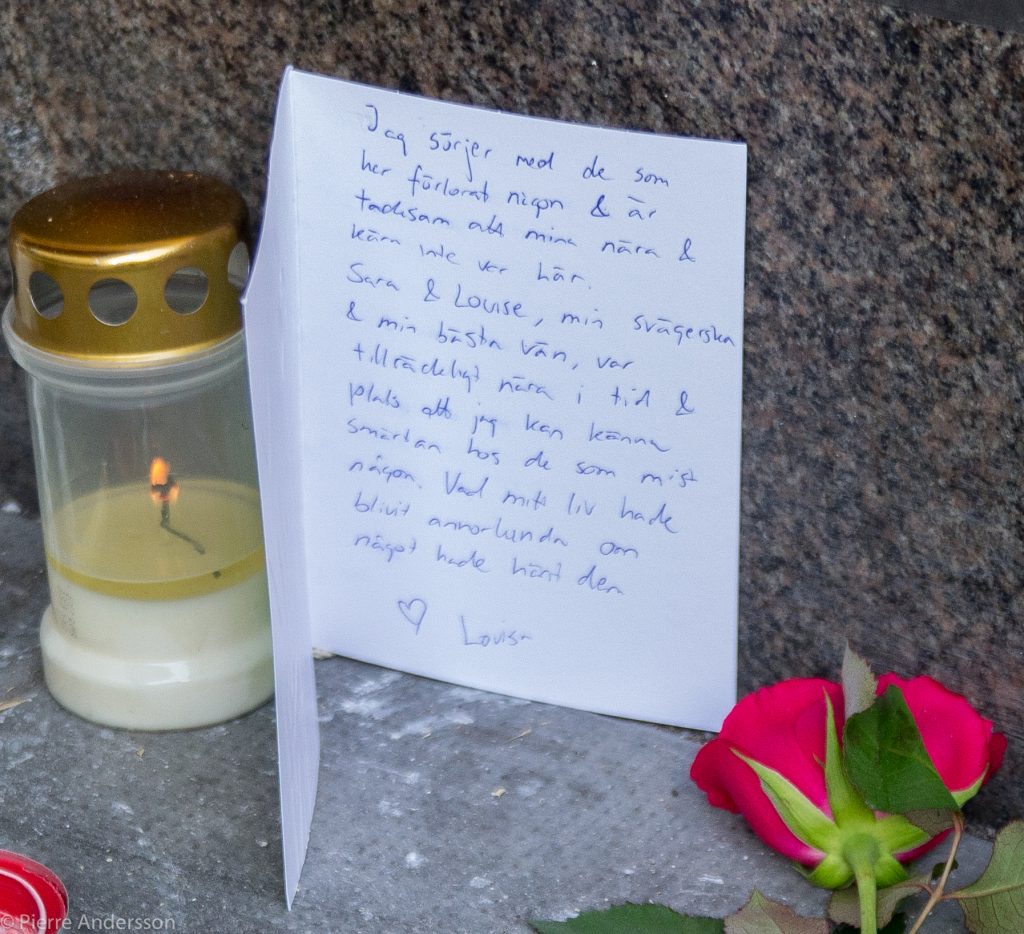 Jag sörjer med de som
har förlorat någon & är
tacksam att mina nära &
kära inte var här.
Sara & Louise, min svägerska
& min bästa vän, var
tillräckligt nära i tid &
plats att jag kan känna
smärtan hos de som mist
någon. Vad mitt liv hade
blivit annorlunda om
något hade hänt dem
♡ Louisa
© Pierre Andersson